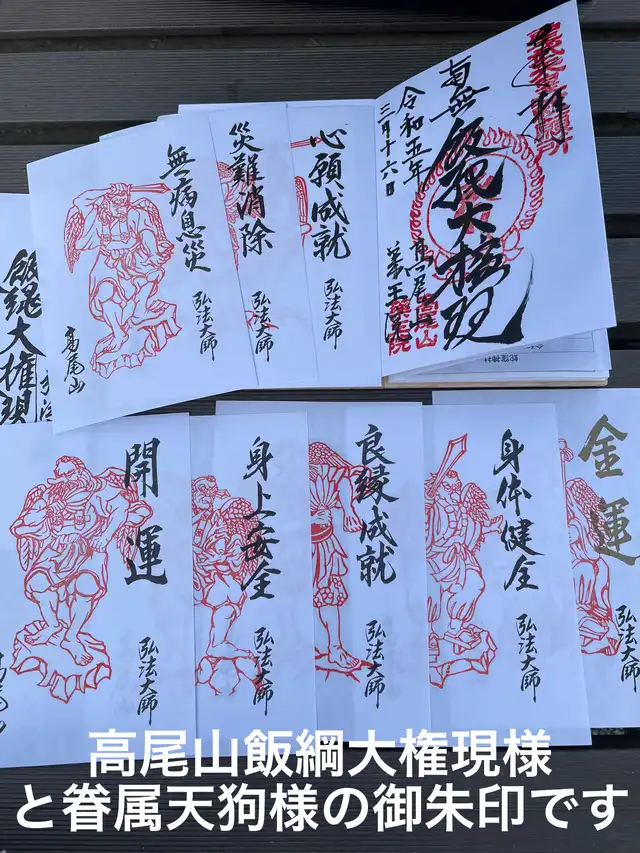 無病息災
弘法大師
高尾山
災難消除
弘法大師
心願成就
弘法大師
奉拝
南無飯縄大権現
令和五年
三月十六日
高尾山
薬王院
飯縄大権現
開運
弘法大師
身上安全
弘法大師
良縁成就
弘法大師
身体健全
弘法大師
金運
弘法大師
高尾山飯綱大権現様
と眷属天狗様の御朱印です